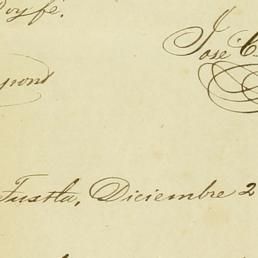 Doy fé.
José C
pond
Tuxtla, Diciembre 2